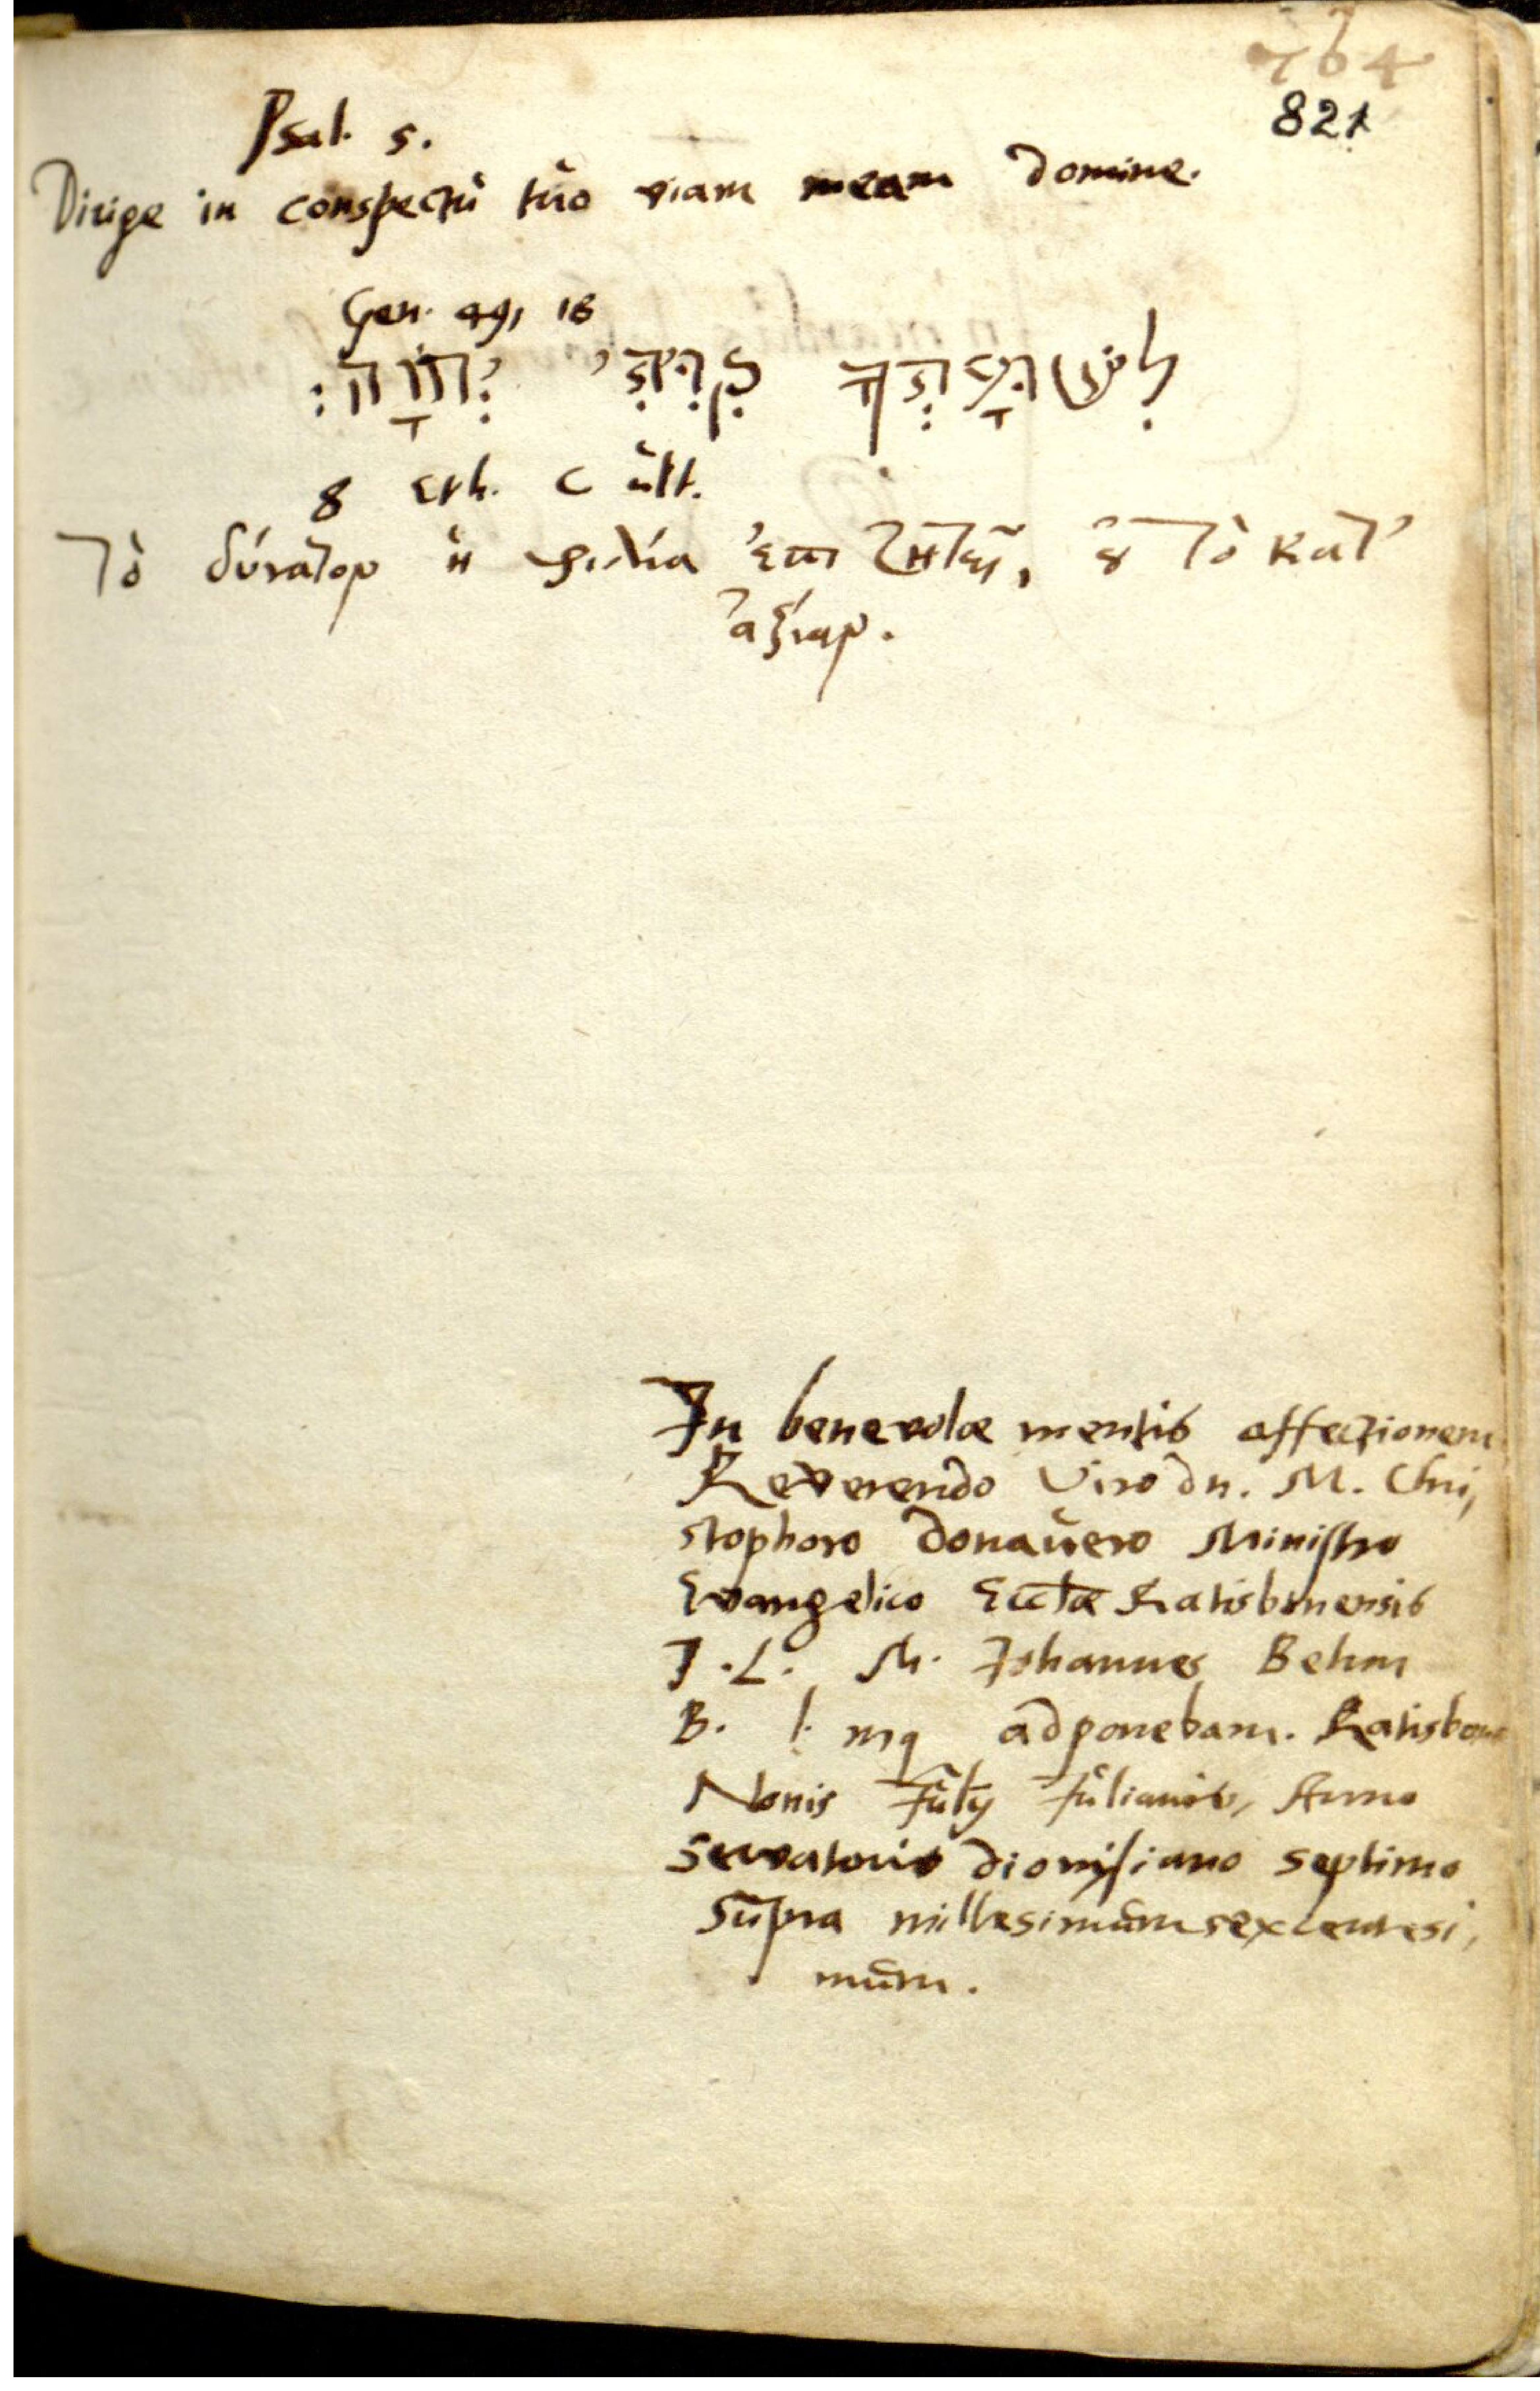 764
821
Psal. 5.
Dirige in conspectu tuo viam meam Domine.
Gen. 49, 18
לִישׁוּעָתְךָ קִוִּיתִי יְהוָֹה׃
8 Eth. c ult.
Τὸ δύνατον ἡ φιλία ἐπιζητεῖ, ȣ̓ τὸ κατ'
ἀξίαν.
In benevolæ mentis affectionem
Reverendo Viro Dn. M. Chri,
stophoro Donavero Ministro
Evangelico Eccłæ Ratisbonensis
J. L. M. Johannes Behm
B. l. mq adponebam. Ratisbonæ
Nonis Julij Julianis, Anno
Servatoris dionysiano septimo
supra millesimum sexcentesi,
mum.